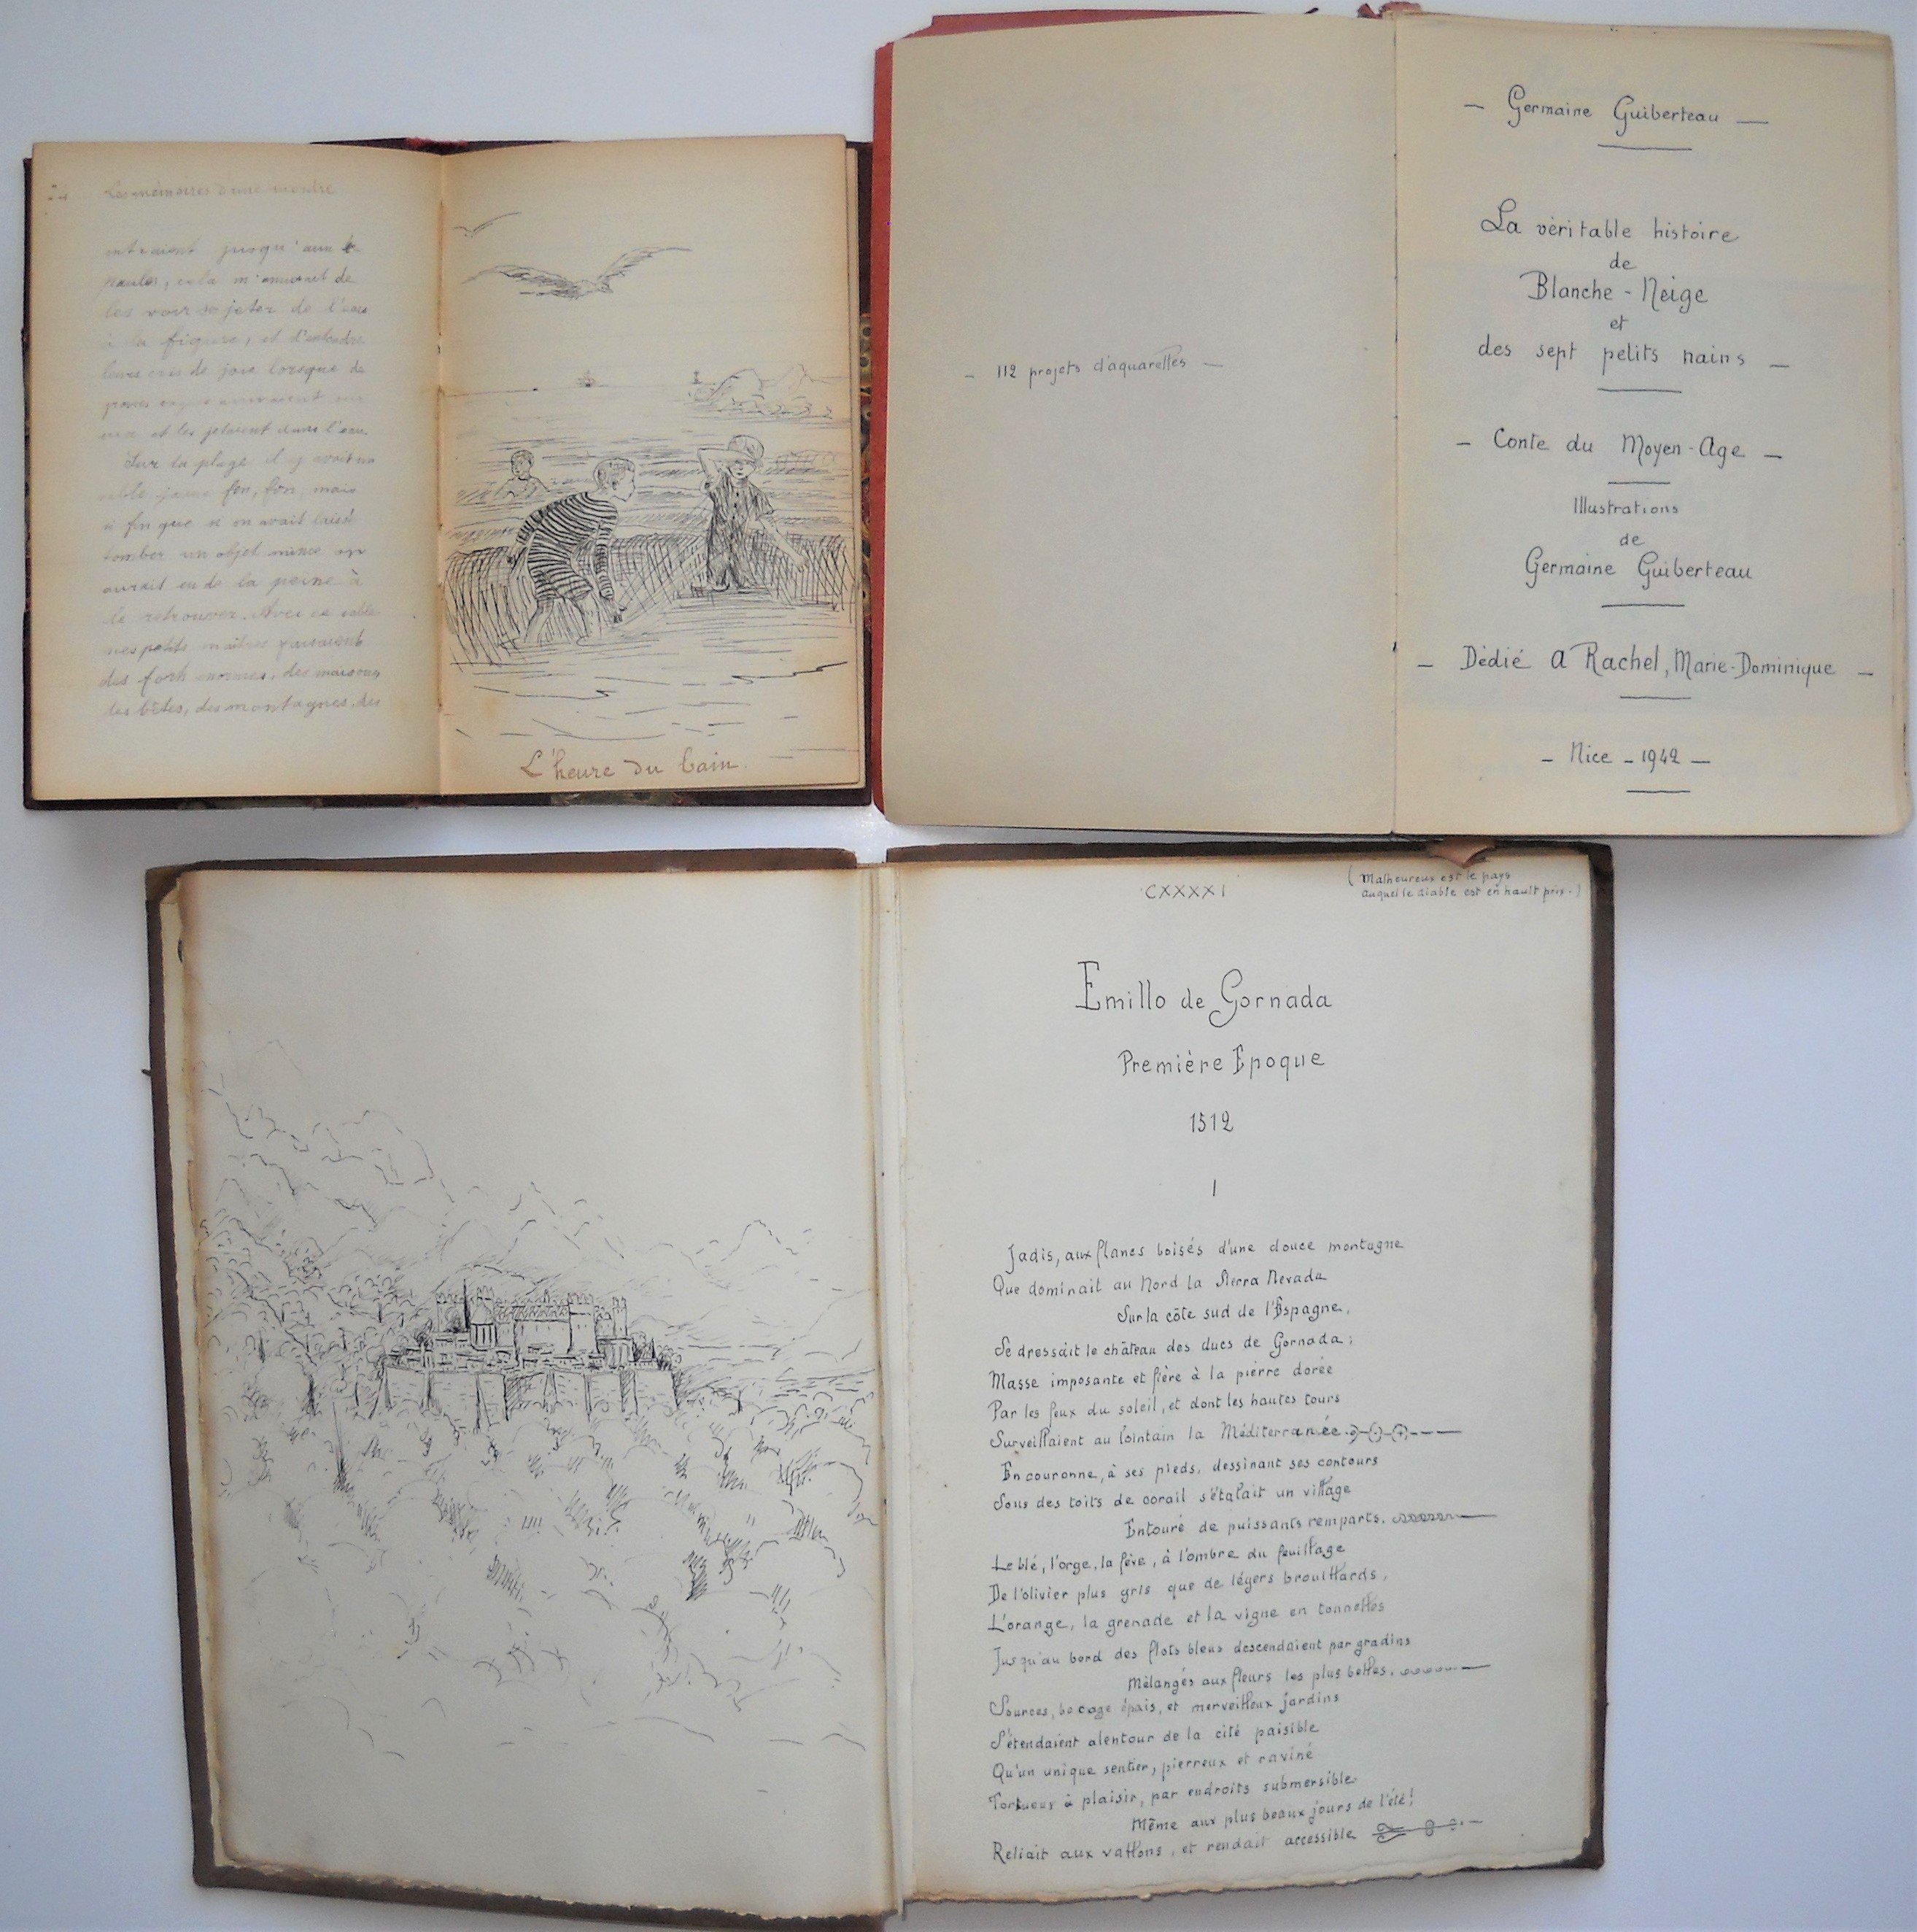 Les mémoires d'une
entraient jusqu'aux é-
paules, cela m'amusait de
les voir se jeter de l'eau
à la figure, et d'entendre
leurs cris de joie lorsque de
grosses arrivaient sur
eux et les jetaient dans l'eau.
Sur la plage il y avait un
sable jaune fin, fin, mais
si fin que si on avait laissé
tomber un objet mince on
aurait eu de la peine à
le retrouver. Avec ce sable
mes petits maîtres faisaient
des forts énormes, des maisons
des bêtes, des montagnes, des
L'heure du bain.
_ 112 projets d'aquarelles _
_ Germaine Guiberteau _
La véritable histoire
de
Blanche-Neige
et
des sept petits nains _
_ Conte du Moyen-Age _
Illustrations
de
Germaine Guiberteau
_ Dédié A Rachel, Marie-Dominique _
_ Nice _ 1942 _
CXXXXI
(Malheureux est le pays
auquel le diable est en hault prix.)
Emillo de Gornada
Première Epoque
1512
I
Jadis, aux flancs boisés d'une douce montagne
Que dominait au Nord la Sierra Nevada
Sur la côte sud de l'Espagne,
Se dressait le château des ducs de Gornada;
Masse imposante et fière à la pierre dorée
Par les feux du soleil, et dont les hautes tours
Surveillaient au lointain la Méditerranée.
En couronne, à ses pieds, dessinant ses contours
Sous des toits de corail s'étalait un village
Entouré de puissants remparts.
Le blé, l'orge, la fève, à l'ombre du feuillage
De l'olivier plus gris que de légers brouillards,
L'orange, la grenade et la vigne en tonnelles
Jusqu'au bord des flots bleus descendaient par gradins
Mélangés aux fleurs les plus belles.
Sources, bocage épais, et merveilleux jardins
S'étendaient alentour de la cité paisible
Qu'un unique sentier, pierreux et raviné
Tortueux à plaisir, par endroits submersible
Même aux plus beaux jours de l'été!
Reliait aux vallons, et rendait accessible